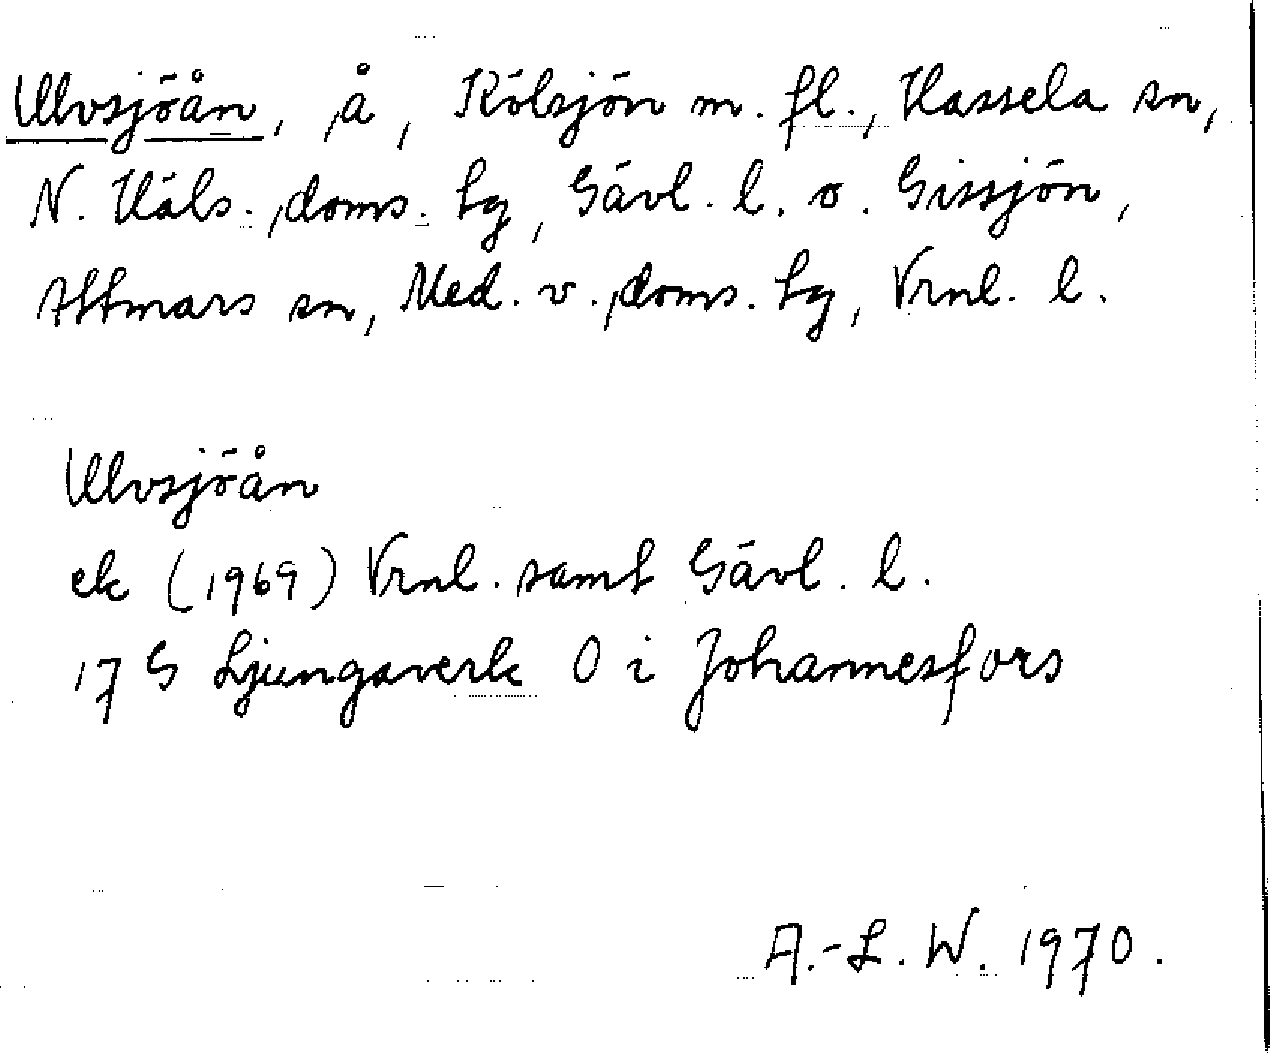 Ulvsjöån, å, Kölsjön m. fl., Hassela sn,
N. Häls. doms. tg, Gävl. l. o. Gissjön,
Attmars sn, Med. v. doms. tg, Vrnl. l.
Ulvsjöån
ek (1969) Vrnl. samt Gävl. l.
17 G Ljungaverk O i Johannesfors
A.-L. W. 1970.